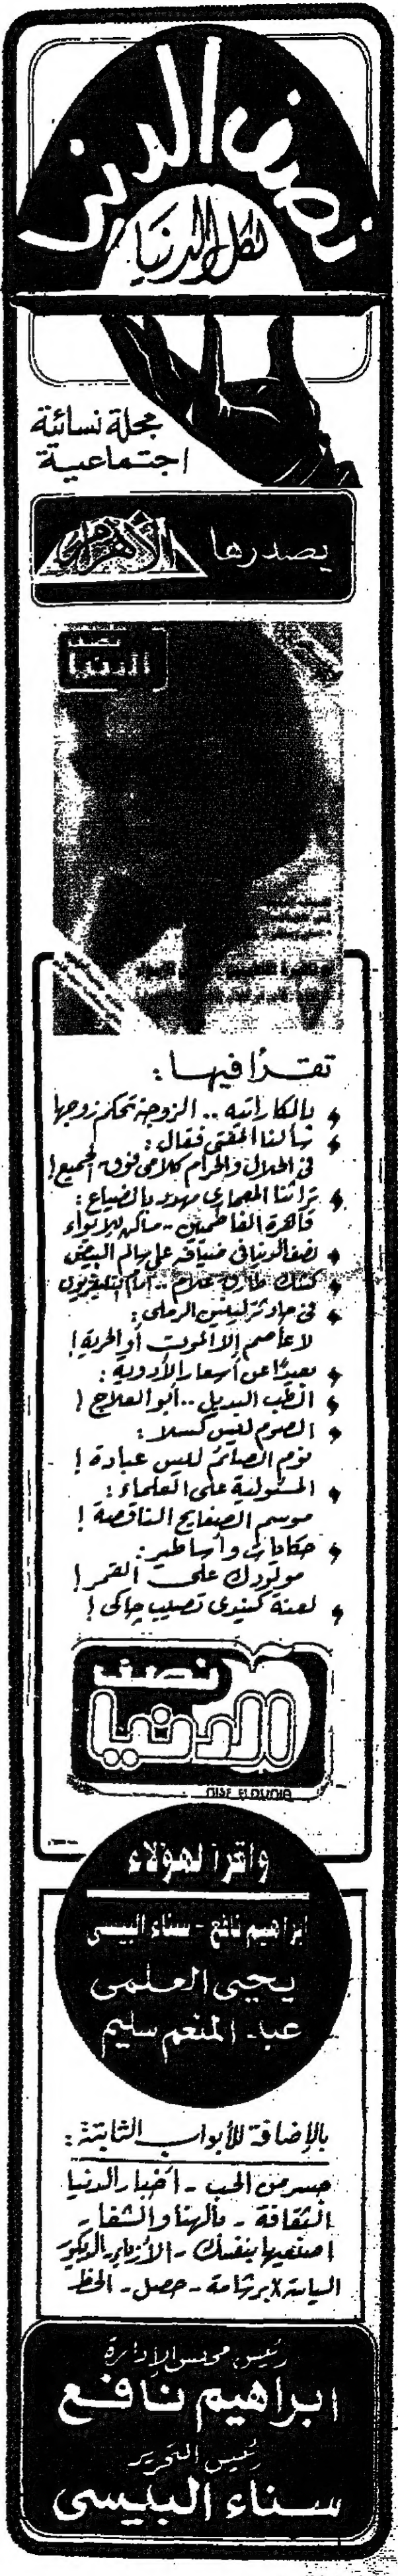 نصف الدنيا
لكل الدنيا
مجلة نسائية
اجتماعية
يصدرها الأهرام
نصف
الدنيا
تقرأ فيها :
بالكاراتيه .. الزوجة تحكم زوجها
سألنا المفتى فقال :
فى الحلال والحرام كلامى فوق الجميع !
تراثنا المعمارى مهدد بالضياع :
قاهرة الفاطميين .. مساكن للإيواء
نصف الدنيا فى ضيافة على سالم البيض
كشك طارق علام .. أمام التليفزيون
فى حادثة ليلى الرملى :
لا عاصم إلا الموت أو الحرية !
بعيدًا عن أسعار الأدوية :
الطب البديل .. أبو العلاج !
الصوم ليس كسلا :
نوم الصائم ليس عبادة !
المسئولية على العلماء :
موسم الصفايح الناقصة !
حكايات وأساطير :
مولودك على القمر !
لعنة كيندى تصيب چاكى !
نصف
الدنيا
NISF ELDUNIA
واقرأ لهؤلاء
ابراهيم نافع - سناء البيسى
يحيى العلمى
عبد المنعم سليم
بالإضافة للأبواب الثابتة :
جسر من الحب - أخبار الدنيا
الثقافة - بالهنا والشفا -
اصنعيها بنفسك - الأزياء - الديكور
السياسة لابرشامة - حصل - الحظ
رئيس مجلس الإدارة
ابراهيم نافع
رئيس التحرير
سناء البيسى